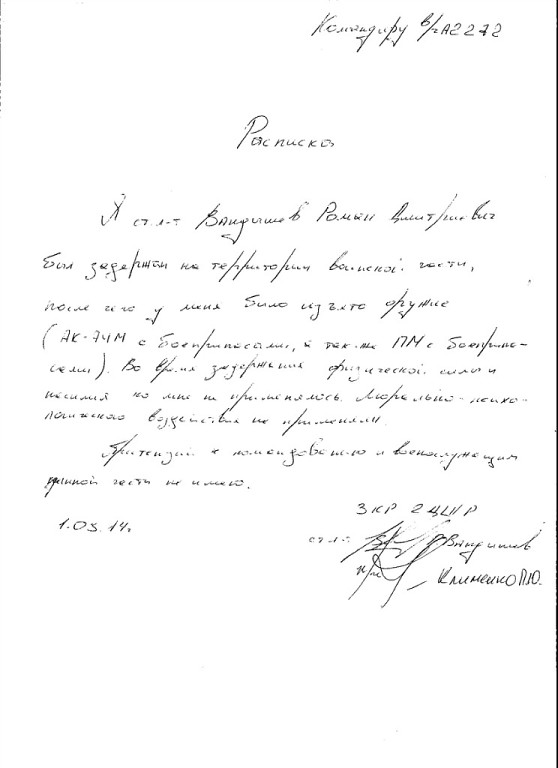 Командиру в/ч А2272
Расписка
Я ст. л-т Вандышев Роман Дмитриевич
был задержан на территории воинской части,
после чего у меня было изъято оружие
(АК-74М с боеприпасами, а так-же ПМ с боеприпа-
сами). Во время задержания физической силы и
насилия ко мне не применялось. Морально-психо-
логического воздействия не применяли.
Претензий к командованию и военнослужащим
данной части не имею.
1.03.14г.
ЗКР
ст. л-т Вандышев
Клименко П.Ю.